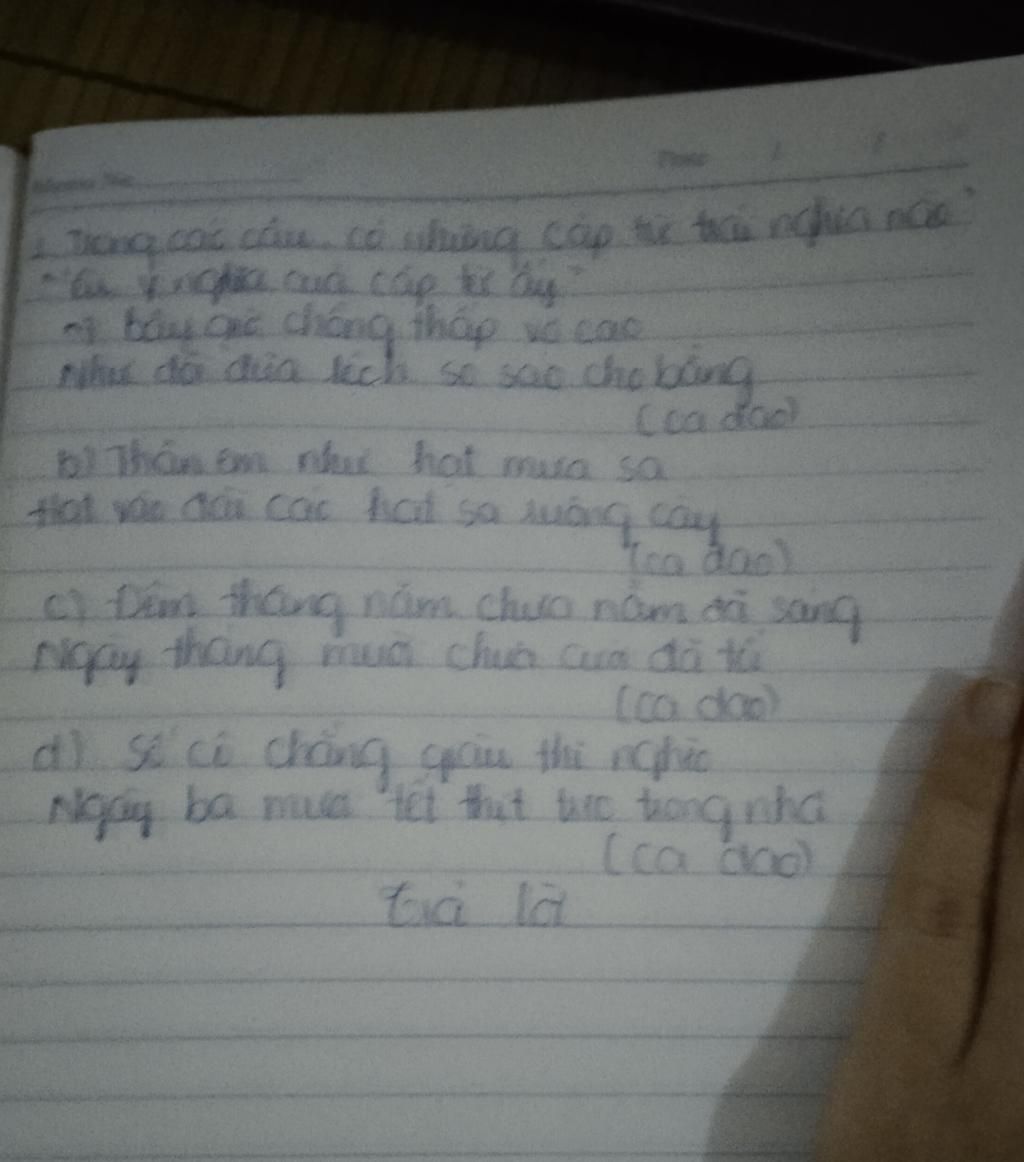 1. Trong các câu, có những cặp từ trái nghĩa nào
ý nghĩa của cặp từ ấy
a) bây giờ chồng thấp vợ cao
Như đôi đũa lệch so sao cho bằng
(ca dao)
b) Thân em như hạt mưa sa
Hạt vào đài các hạt sa ruộng cày
(ca dao)
c) Đêm tháng năm chưa nằm đã sáng
Ngày tháng mười chưa cười đã tối
(ca dao)
d) Số cô chẳng giàu thì nghèo
Ngày ba mươi tết thịt treo trong nhà
(ca dao)
trả lời